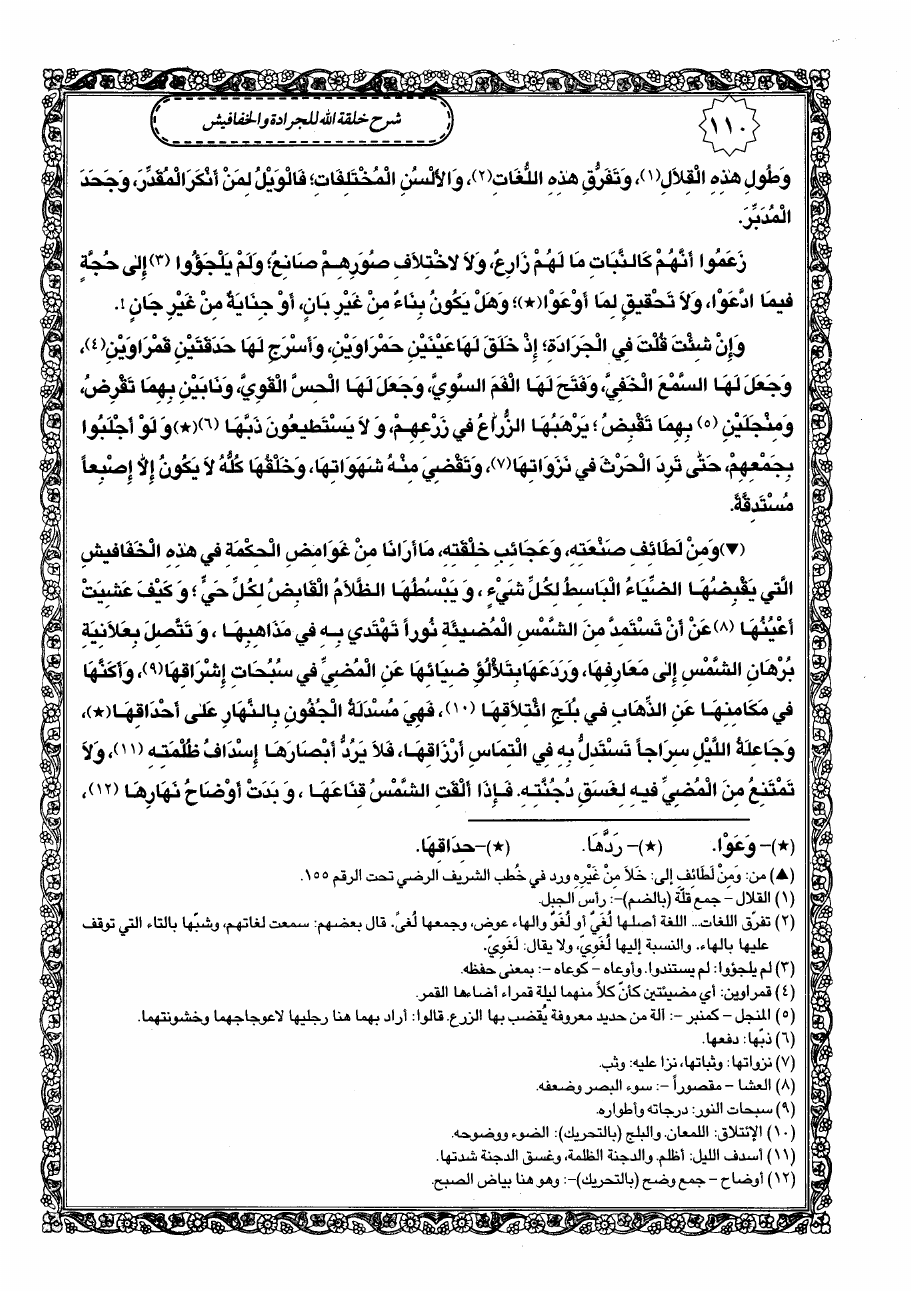 شرح خلقة الله للجرادة والخفافيش
١١٠
وَطُولِ هٰذِهِ الْقِلاَلِ(١)، وَتَفَرُّقِ هٰذِهِ اللُّغَاتِ(٢)، وَالأَلْسُنِ الْمُخْتَلِفَاتِ؛ فَالْوَيْلُ لِمَنْ أَنْكَرَ الْمُقَدِّرَ، وَجَحَدَ
الْمُدَبِّرَ.
زَعَمُوا أَنَّهُمْ كَالنَّبَاتِ مَا لَهُمْ زَارِعٌ، وَلاَ لاِخْتِلاَفِ صُوَرِهِمْ صَانِعٌ؛ وَلَمْ يَلْجَؤُوا (٣) إِلى حُجَّةٍ
فيمَا ادَّعَوْا، وَلاَ تَحْقيقٍ لِمَا أَوْعَوْا(★)؛ وَهَلْ يَكُونُ بِنَاءٌ مِنْ غَيْرِ بَانٍ، أَوْ جِنَايَةٌ مِنْ غَيْرِ جَانٍ!.
وَإِنْ شِئْتَ قُلْتَ فِي الْجَرَادَةِ؛ إِذْ خَلَقَ لَهَا عَيْنَيْنِ حَمْرَاوَيْنِ، وَأَسْرَجَ لَهَا حَدَقَتَيْنِ قَمْرَاوَيْنِ(٤)،
وَجَعَلَ لَهَا السَّمْعَ الْخَفِيَّ، وَفَتَحَ لَهَا الْفَمَ السَّوِيَّ، وَجَعَلَ لَهَا الْحِسَّ الْقَوِيَّ، وَنَابَيْنِ بِهِمَا تَقْرِضُ،
وَمِنْجَلَيْنِ (٥) بِهِمَا تَقْبِضُ؛ يَرْهَبُهَا الزُّرَّاعُ في زَرْعِهِمْ، وَ لاَ يَسْتَطيعُونَ ذَبَّهَا (٦)(★) وَ لَوْ أَجْلَبُوا
بِجَمْعِهِمْ، حَتّٰى تَرِدَ الْحَرْثَ في نَزَوَاتِهَا(٧)، وَتَقْضِيَ مِنْهُ شَهَوَاتِهَا، وَخَلْقُهَا كُلُّهُ لاَ يَكُونُ إِلاّٰ إِصْبَعاً
مُسْتَدِقَّةً.
(▼) وَمِنْ لَطَائِفِ صَنْعَتِهِ، وَعَجَائِبِ خِلْقَتِهِ، مَا أَرَانَا مِنْ غَوَامِضِ الْحِكْمَةِ في هٰذِهِ الْخَفَافيشِ
الَّتي يَقْبِضُهَا الضِّيَاءُ الْبَاسِطُ لِكُلِّ شَيْءٍ، وَ يَبْسُطُهَا الظَّلاَمُ الْقَابِضُ لِكُلِّ حَيٍّ؛ وَ كَيْفَ عَشِيَتْ
أَعْيُنُهَا (٨) عَنْ أَنْ تَسْتَمِدَّ مِنَ الشَّمْسِ الْمُضيئَةِ نُوراً تَهْتَدي بِهِ في مَذَاهِبِهَا، وَ تَتَّصِلَ بِعَلاَنِيَةِ
بُرْهَانِ الشَّمْسِ إِلى مَعَارِفِهَا، وَرَدَعَهَا بِتَلَأْلُؤِ ضِيَائِهَا عَنِ الْمُضِيِّ في سُبُحَاتِ إِشْرَاقِهَا(٩)، وَأَكَنَّهَا
في مَكَامِنِهَا عَنِ الذَّهَابِ في بُلَجِ ائْتِلاَقِهَا (١٠)، فَهِيَ مُسْدَلَةُ الْجُفُونِ بِالنَّهَارِ عَلى أَحْدَاقِهَا(★)،
وَجَاعِلَةُ اللَّيْلِ سِرَاجاً تَسْتَدِلُّ بِهِ فِي الْتِمَاسِ أَرْزَاقِهَا، فَلاَ يَرُدُّ أَبْصَارَهَا إِسْدَافُ ظُلْمَتِهِ (١١)، وَلاَ
تَمْتَنِعُ مِنَ الْمُضِيِّ فيهِ لِغَسَقِ دُجُنَّتِهِ. فَإِذَا أَلْقَتِ الشَّمْسُ قِنَاعَهَا، وَ بَدَتْ أَوْضَاحُ نَهَارِهَا (١٢)،
(★)– وَعَوْا. (★)– رَدَّهَا. (★)–حِدَاقِهَا.
(▲) من: وَمِنْ لَطَائِفِ إلى: خَلاَ مِنْ غَيْرِهِ ورد في خُطب الشريف الرضي تحت الرقم ١٥٥.
(١) القلال – جمع قلّة (بالضم)–: رأس الجبل.
(٢) تفرّق اللغات... اللغة أصلها لُغَيٌ أو لُغَوٌ والهاء عوض، وجمعها لُغىً. قال بعضهم: سمعت لغاتهم، وشبّها بالتاء التي توقف
عليها بالهاء. والنسبة إليها لُغَوِيّ، ولا يقال: لَغَوِيّ.
(٣) لم يلجؤوا: لم يستندوا. وأوعاه – كوعاه –: بمعنى حفظه.
(٤) قمراوين: أي مضيئتين كأنّ كلاًّ منهما ليلة قمراء أضاءها القمر.
(٥) المنجل – كمنبر –: آلة من حديد معروفة يُقضب بها الزرع. قالوا: أراد بهما هنا رجليها لاعوجاجهما وخشونتهما.
(٦) ذبّها: دفعها.
(٧) نزواتها: وثباتها، نزا عليه: وثب.
(٨) العشا – مقصوراً –: سوء البصر وضعفه.
(٩) سبحات النور: درجاته وأطواره.
(١٠) الإئتلاق: اللمعان. والبلج (بالتحريك): الضوء ووضوحه.
(١١) أسدف الليل: أظلم. والدجنة الظلمة، وغسق الدجنة شدتها.
(١٢) أوضاح – جمع وضح (بالتحريك)–: وهو هنا بياض الصبح.